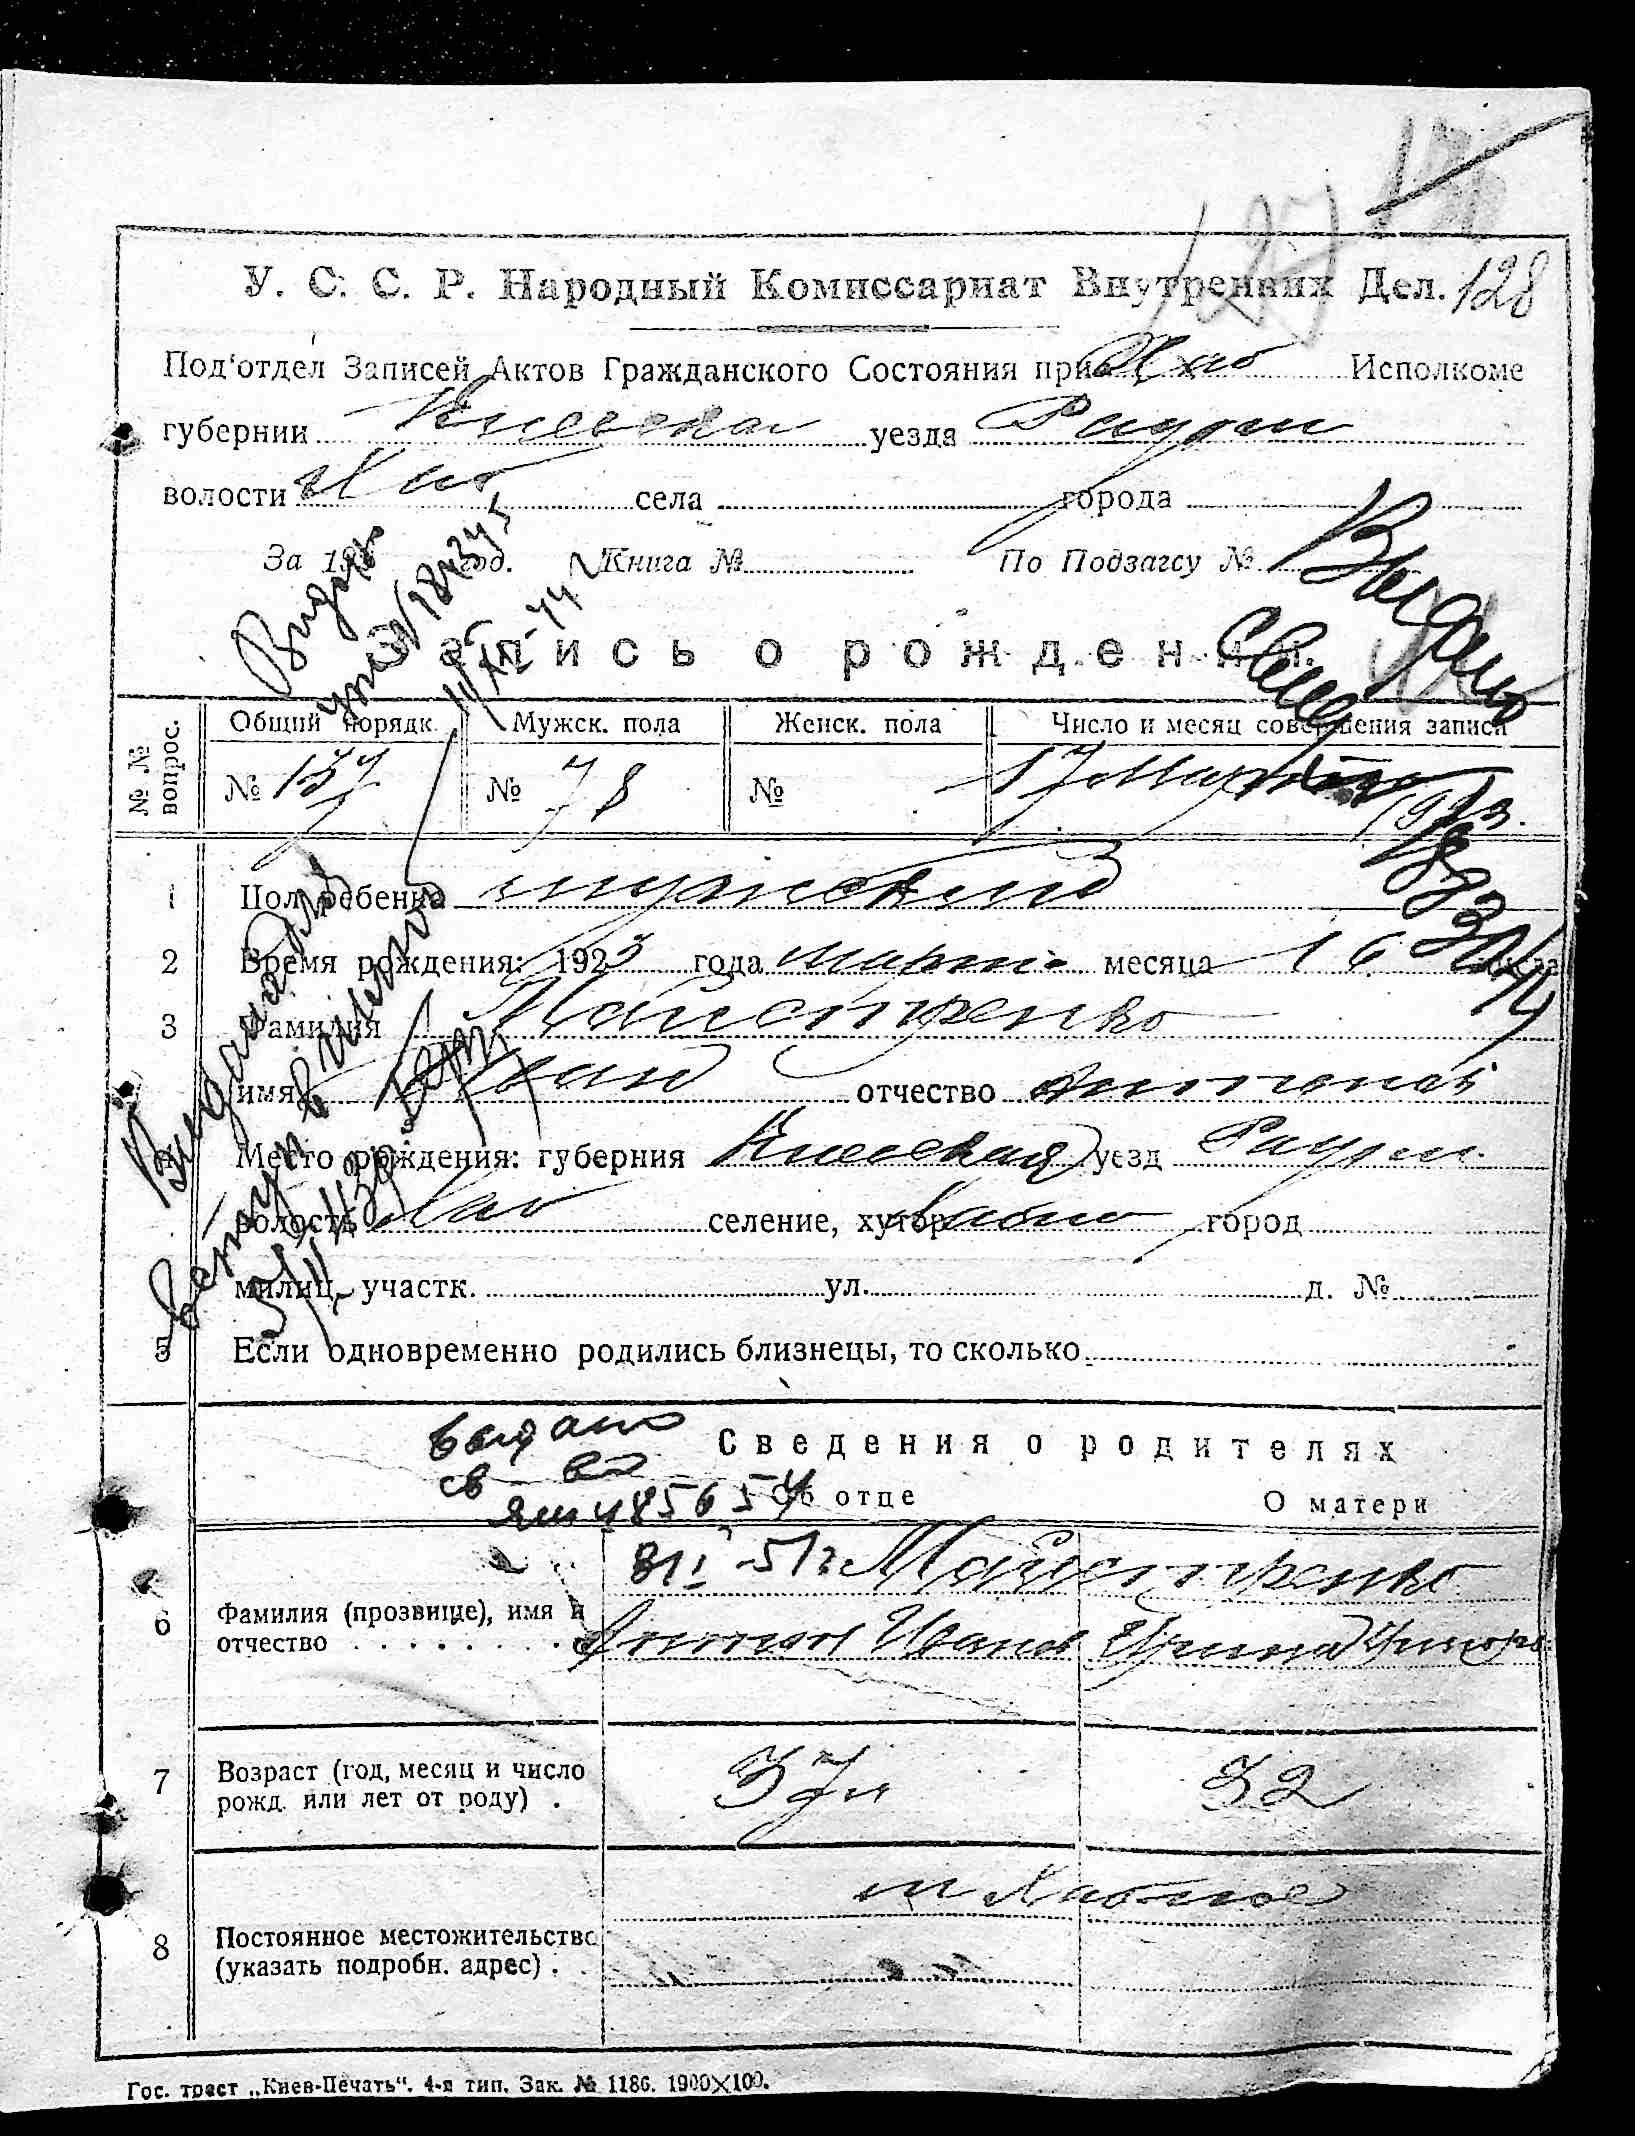 128
У. С. С. Р. Народный Комиссариат Внутренних Дел.
127
Под‘отдел Записей Актов Гражданского Состояния при Хаб Исполкоме
губернии Киевская уезда Радом
волости Хаб села города
За 192 год. Книга № По Подзагсу №
Выдано
Запись о рождении.
№№ вопрос. Общий порядк. Мужск. пола Женск. пола Число и месяц совершения записи
№ 157 № 78 № 17 Марта 1923.
1 Пол ребенка мужской
2 Время рождения: 1923 года март месяца 16 числа
3 Фамилия Майстренко
имя Иван отчество Антонов
4 Место рождения: губерния Киевская уезд Радом.
волость Хаб селение, хутор Хабно город
милиц. участк. ул. д. №
5 Если одновременно родились близнецы, то сколько
выдано
св-во
Сведения о родителях
485654
Об отце О матери
8/I-51г. Майстренко
6 Фамилия (прозвище), имя и отчество Антон Иванов Ирина
7 Возраст (год, месяц и число рожд. или лет от роду) . 37л 32
м Хабное
8 Постоянное местожительство (указать подробн. адрес) .
Гос. трест „Киев-Печать“. 4-я тип. Зак. № 1186. 1900×100.